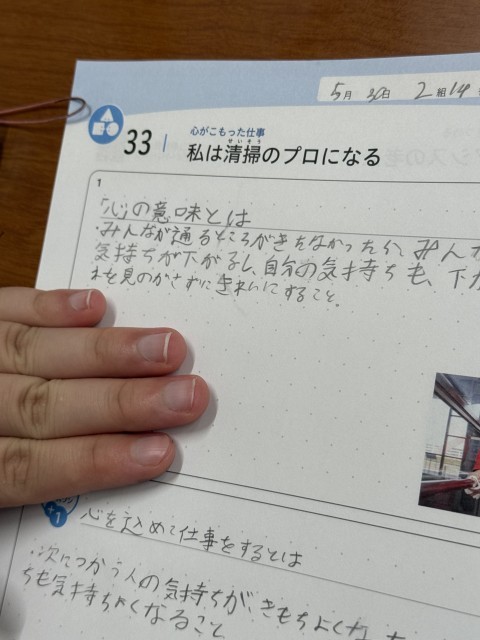 5月30日 2組14
心がこもった仕事
33 私は清掃のプロになる
せいそう
1
「心」の意味とは
・みんなが通るところがきたなかったら、みんな
気持ちが下がるし、自分の気持ちも、下が
れを見のがさずにきれいにすること。
+1
心を込めて仕事をするとは
・次につかう人の気持ちが、きもちよくな
ちも気持ちよくなること